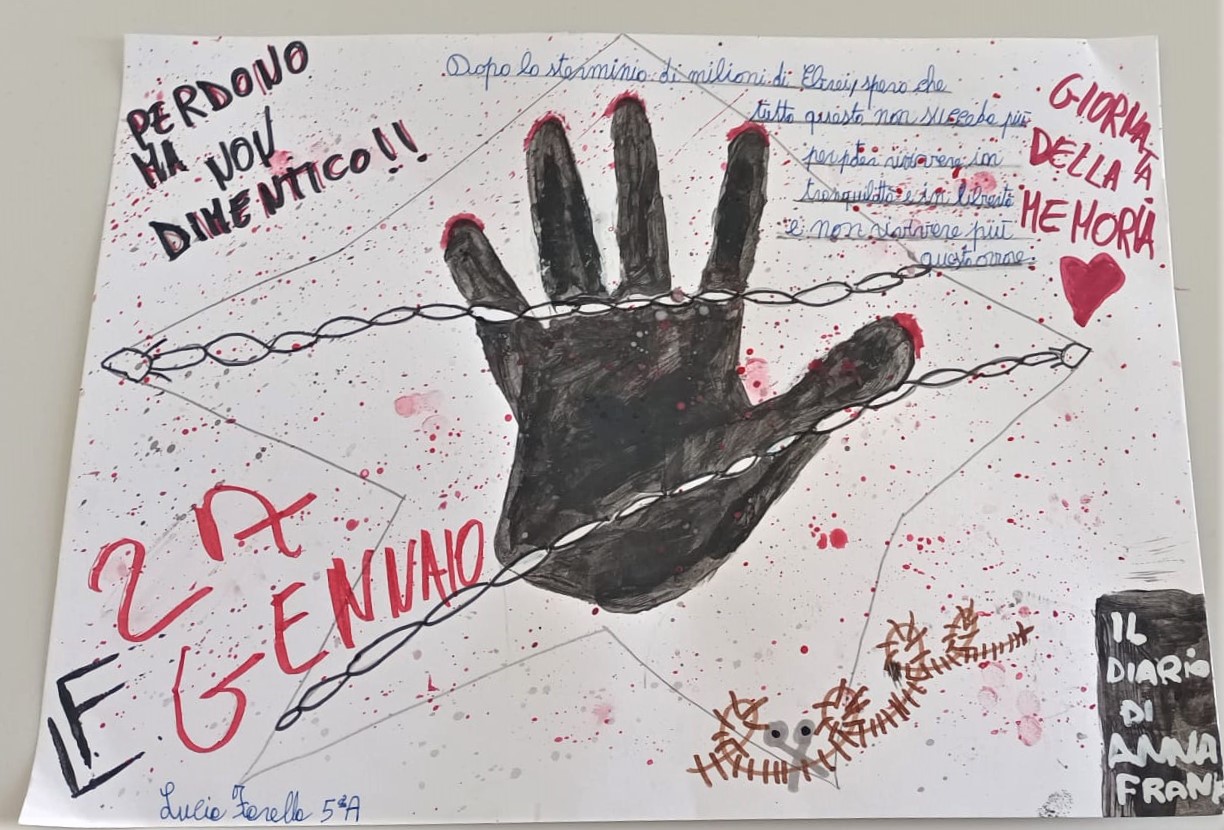 PERDONO
MA NON
DIMENTICO!!
Dopo lo sterminio di milioni di Ebrei, spero che
tutto questo non succeda più
per poter vivere in
tranquillità e in libertà
e non rivivere più
questo orrore.
GIORNATA
DELLA
MEMORIA
27
GENNAIO
LF
IL
DIARIO
DI
ANNA
FRANK
Lucia Forella 5ªA